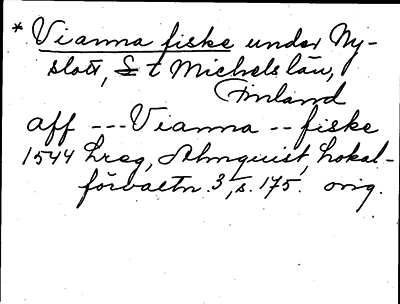 * Vianna fiske under Ny-
slott, S:t Michels län,
Finland
aff --- Vianna -- fiske
1544 hreg, Almquist, Lokal-
förvaltn. 3, s. 175. orig.